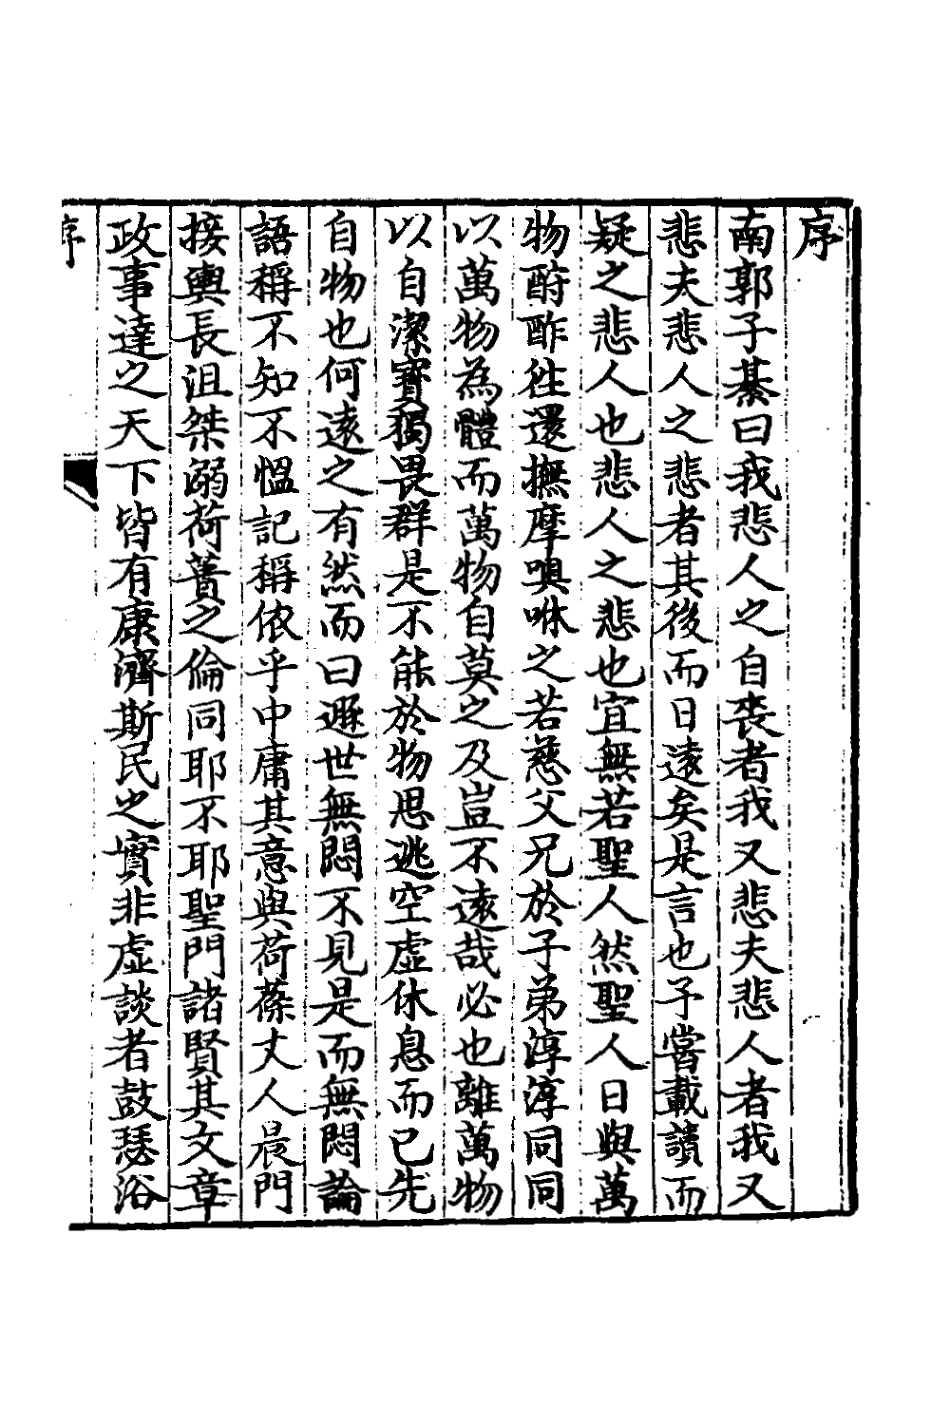 序
南郭子綦曰我悲人之自喪者我又悲夫悲人者我又
悲夫悲人之悲者其後而日遠矣是言也予嘗載讀而
疑之悲人也悲人之悲也宜無若聖人然聖人日與萬
物酧酢徃還撫摩噢咻之若慈父兄於子弟淳淳同同
以萬物為體而萬物自莫之及豈不遠哉必也離萬物
以自潔寶獨畏群是不能於物思逃空虛休息而已先
自物也何遠之有然而曰遯世無悶不見是而無悶論
語稱不知不慍記稱依乎中庸其意與荷蓧丈人晨門
接輿長沮桀溺荷蕢之倫同耶不耶聖門諸賢其文章
政事達之天下皆有康濟斯民之實非虛談者鼓瑟浴
序